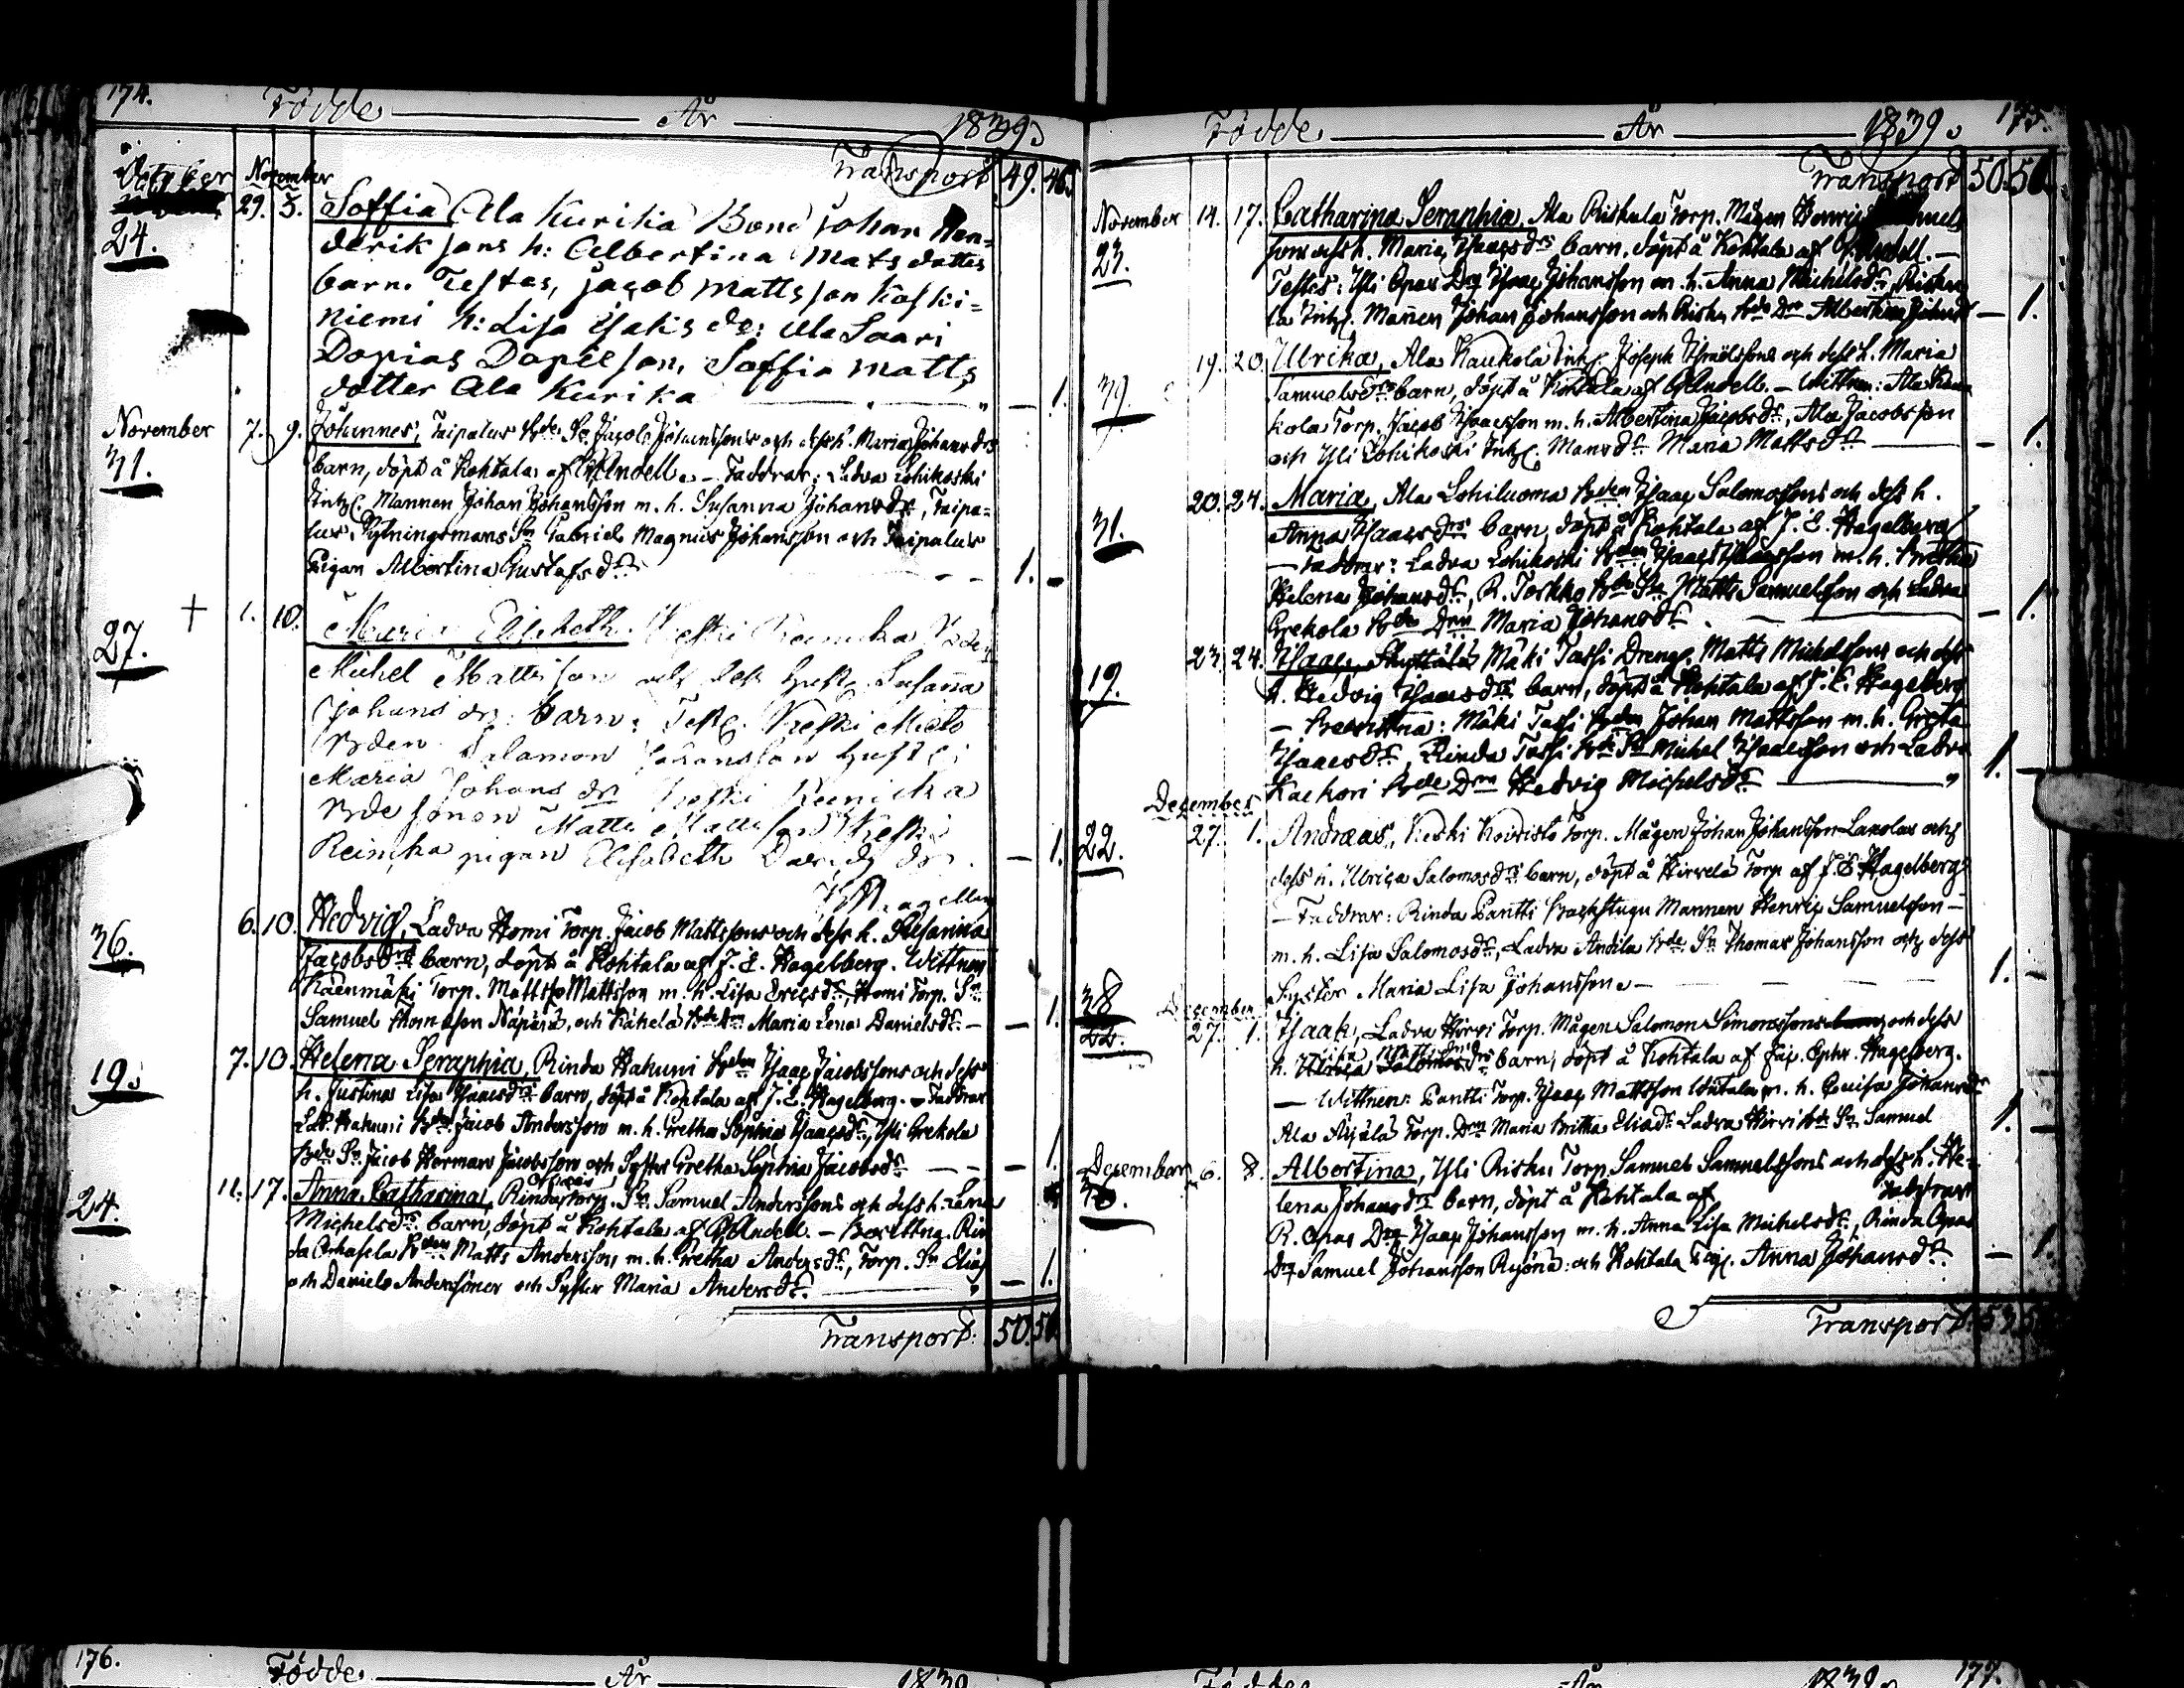 174. Födde År 1839.
Transport 49. 46.
October November
29. 3. Soffia Ala Kurika Bond Johan Hen=
24. derik sons h: Albertina Mats dotters
barn. Testes, Jacob Mattsson Koski=
niemi h: Lisa Isaks dr: Ala Saari
Dopias Dopiesson, Soffia Matts
dotter Ala Kurika — 1.
November 7. 9. Johannes, Taipalus Bde Sn Jacob Johanssons och dess h. Maria Johansdrs
31. barn, döpt å Kohtala af Andell. – Faddrar: Ladva Lohikoski
Inhs. Mannen Johan Johansson m. h. Susanna Johansdr, Taipa=
lus Nylningsmans Sn Gabriel Magnus Johansson och Taipalus
Pigan Albertina Gustafsdr — 1. -
+ 1. 10. Maria Elisabeth. Keski Reinika Bden
27. Michel Mattsson och dess hustr. Susanna
Johans dr: barn: Test. Keski Mieto
Bden Salamon Johansson hustr:
Maria Johans dr Keski Reinicka
Bde sonen Matts Mattsson Keski
Reinika pigan Elisabeth Davids dr. — 1.
6. 10. Hedvig, Ladva Homi Torp. Jacob Mattssons och dess h. Susanna
36. Jacobsdrs barn, döpt å Kohtala af J. E. Hagelberg. Wittnen
Käenmäki Torp. Matts Mattsson m. h. Lisa Ericsdr, Homi Torp. Sn
Samuel Thomasson Näpärä, och Kähelä Bde Drn Maria Lena Danielsdr. — — 1.
7. 10. Helena Seraphia, Rinda Hakuni Bden Isaac Jacobssons och dess
19. h. Justina Lisa Isaacsdrs barn, döpt å Kohtala af J. E. Hagelberg. – Faddrar
Hakuni Bde Jacob Andersson m. h. Gretha Sophia Isaacsdr, Yli Grekola
Bde Sn Jacob Herman Jacobsson och Syster Gretha Sophia Jacobsdr — — 1.
11. 17. Anna Catharina, Rinda Torp. Sn Samuel Anderssons och dess h. Lena
24. Michelsdrs barn, döpt å Kohtala af Andell. – Bevittna. Rin
da Orhasela Bden Matts Andersson m. h. Gretha Andersdr, Torp. Sn Elias
och Daniels Anderssöner och Syster Maria Andersdr. — — 1.
Transport: 50. 50.
Födde År 1839. 175.
Transport 50. 50.
November 14. 17. Catharina Seraphia, Ala Riskula Torp. Mågen Henric
23. sons och h. Maria Isaacsdrs barn, döpt å Kohtala af Andell. –
Testes: Yli Opas Drg Isaac Johansson m. h. Anna Michelsdr, Risku
la Inhs. Mannen Johan Johansson och Risku Bde Drn Albertina Johansdr — 1.
19. 20. Ulrika, Ala Kaukola Inhs Joseph Israelssons och dess h. Maria
39. Samuelsdrs barn, döpt å Kohtala af Andell. – Wittnen: Ala Kau
kola Torp. Jacob Isaacsson m. h. Albertina Jacobsdr, Ala Jacobsson
och Yli Lohikoski Inhs. Mansdr Maria Mattsdr — — 1.
20. 24. Maria, Ala Lohiluoma Bden Isaac Salomossons och dess h.
31. Anna Isaacsdrs barn, döpt å Kohtala af J. E. Hagelberg
– Faddrar: Ladva Lohikoski Bden Isaac Isaacsson m. h. Gretha
Helena Johansdr, R. Torkko Bde Sn Matts Samuelsson och Ladva
Grekola Bde Drn Maria Johansdr. — — 1.
23. 24. Isaac, Skyttälä Mäki Tassi Dreng. Matts Michelssons och dess
19. h. Hedvig Isaacsdrs barn, döpt å Kohtala af J. E. Hagelberg
– Bevittna: Mäki Tassi Bden Johan Mattsson m. h. Greta
Isaacsdr, Rinda Tassi Bde Sn Michel Isaacsson och Ladva
Kackori Bde Drn Hedvig Michelsdr — 1. —
December
27. 1. Andreas, Keski Koivisto Torp. Mågen Johan Johansson Lanolas och
22. dess h. Ulrica Salomosdrs barn, döpt å Hirvelä Torp af J. E. Hagelberg
– Faddrar: Rinda Pantti Backstugu Mannen Henric Samuelsson –
m. h. Lisa Salomosdr, Ladva Anttila Bde Sn Thomas Johansson och dess
Syster Maria Lisa Johansson. — 1. -
38 December
27. 1. Isaak, Ladva Hirvi Torp. Mågen Salomon Simonssons barn och dess
22. h. Ulrica Salomosdrs barn, döpt å Kohtala af Jac. Ephr. Hagelberg.
— Wittnen: Pantti Torp. Isaac Mattsson m. h. Lovisa Johansdr
Ala Äijälä Torp. Drn Maria Britha Eliadr Ladva Hirvi Bde Sn Samuel 1. —
December 6. 8. Albertina, Yli Risku Torp. Samuel Samuelssons och dess h. He=
lena Johansdrs barn, döpt å Kohtala af
R. Opas Drg Isaac Johansson m. h. Anna Lisa Michelsdr, Rinda Opas
Drg Samuel Johansson Ryönä och Kohtala Pig. Anna Johansdr. — 1.
Transport: 53.
176. Födde År 1839
Födde År 1839. 177.